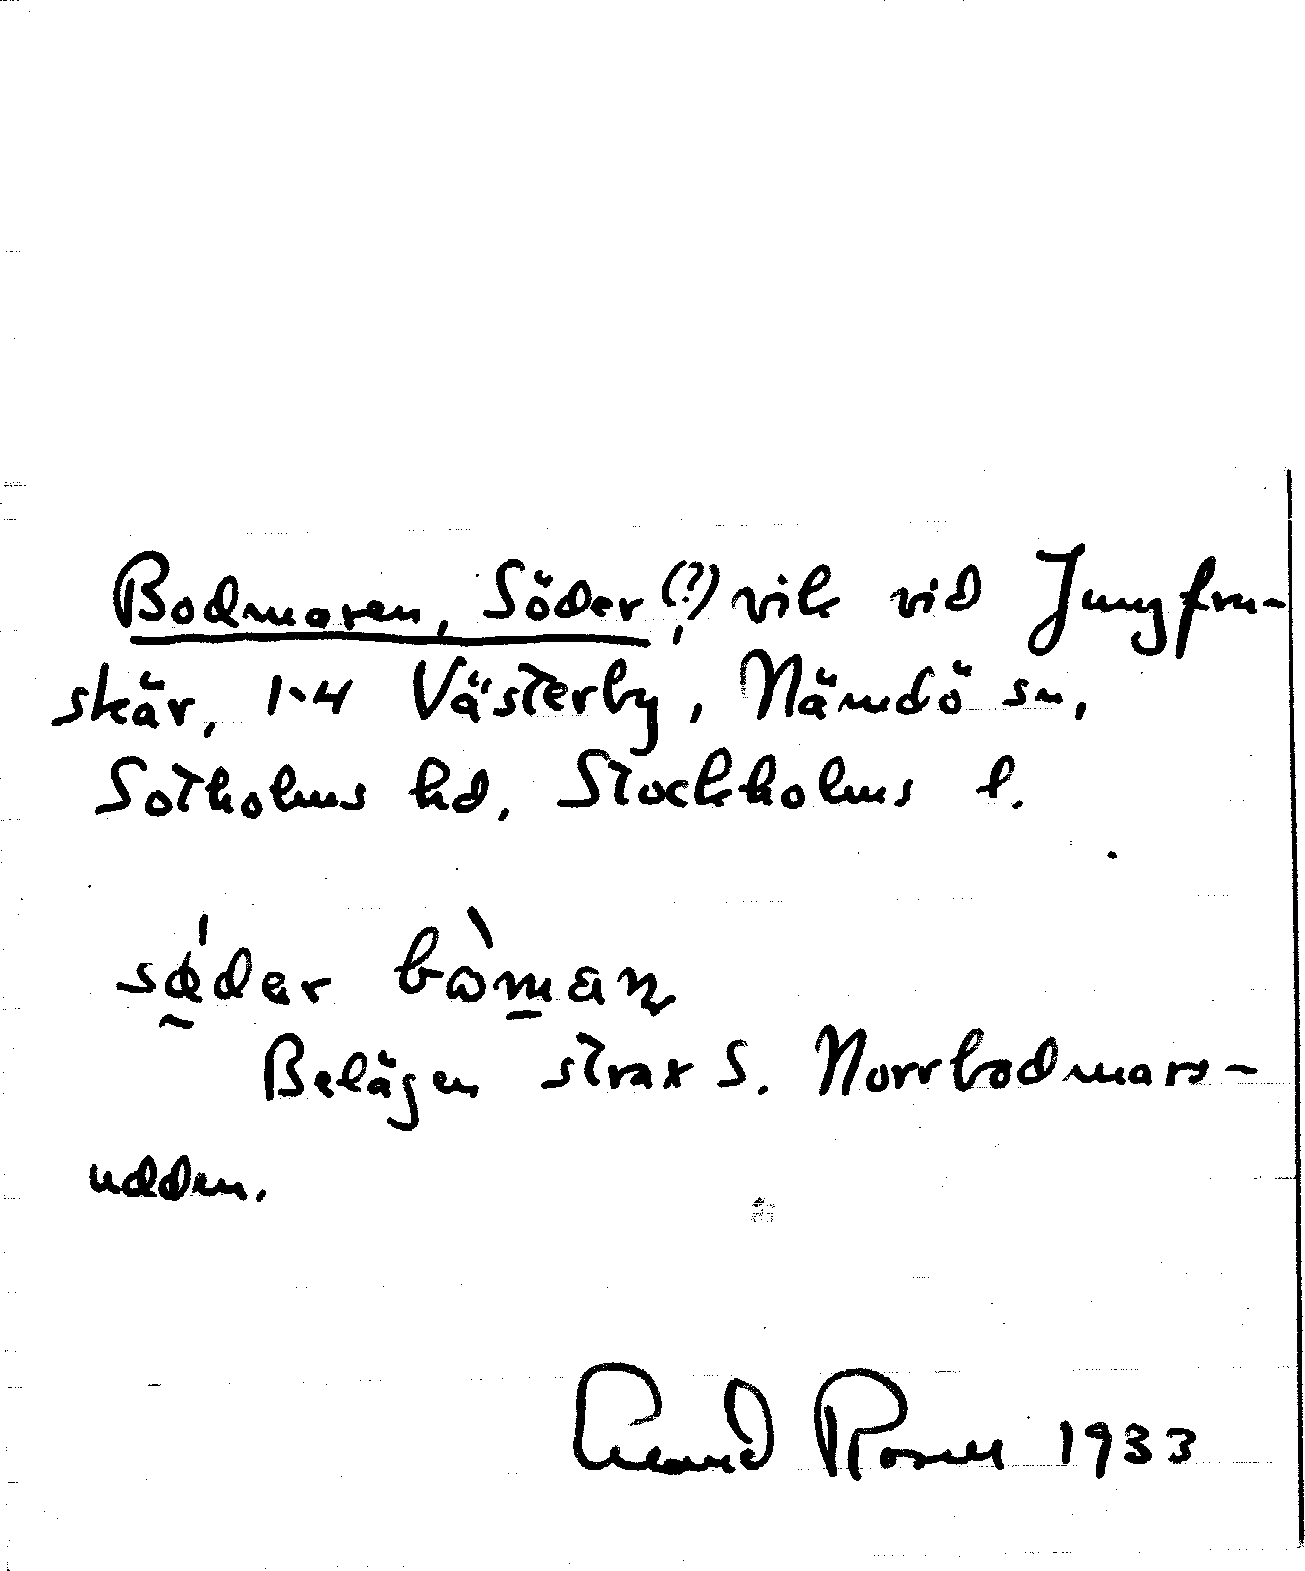 Bodmaren, Söder (?), vik vid Jungfru-
skär, 1-4 Västerby, Nämdö sn,
Sotholms hd, Stockholms l.
södər bòman
Belägen strax S. Norrbodmars-
udden.
Rosell 1933